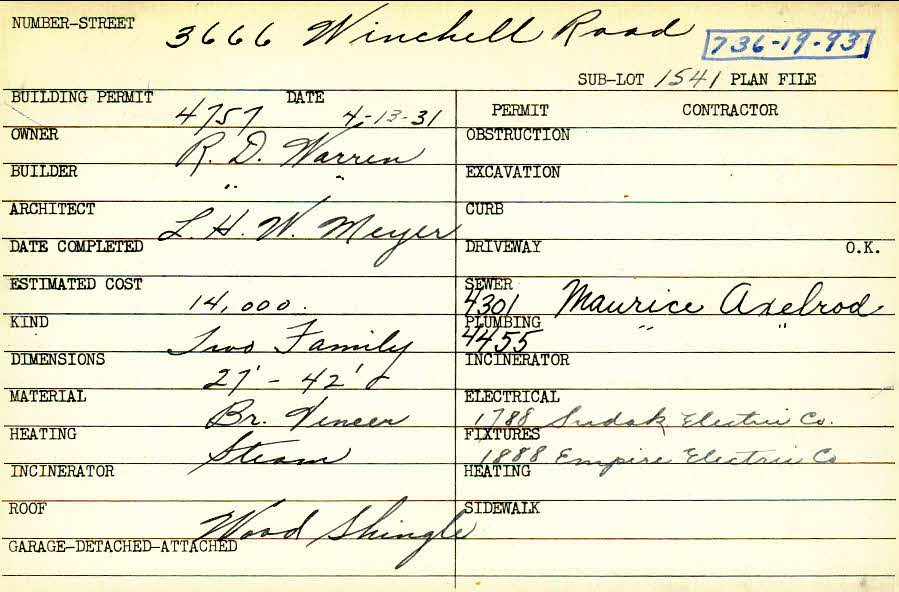 NUMBER-STREET 3666 Winchell Road
736-19-93
SUB-LOT 1541 PLAN FILE
BUILDING PERMIT 4757 DATE 4-13-31
PERMIT CONTRACTOR
OWNER R. D. Warren
OBSTRUCTION
BUILDER " "
EXCAVATION
ARCHITECT L. H. W. Meyer
CURB
DATE COMPLETED
DRIVEWAY O.K.
ESTIMATED COST 14,000.
SEWER 4301 Maurice Axelrod
KIND Two Family
PLUMBING 4455 " "
DIMENSIONS 27' - 42'
INCINERATOR
MATERIAL Br. Veneer
ELECTRICAL 1788 Sudak Electric Co.
HEATING Steam
FIXTURES 1888 Empire Electric Co
INCINERATOR
HEATING
ROOF Wood Shingle
SIDEWALK
GARAGE-DETACHED-ATTACHED